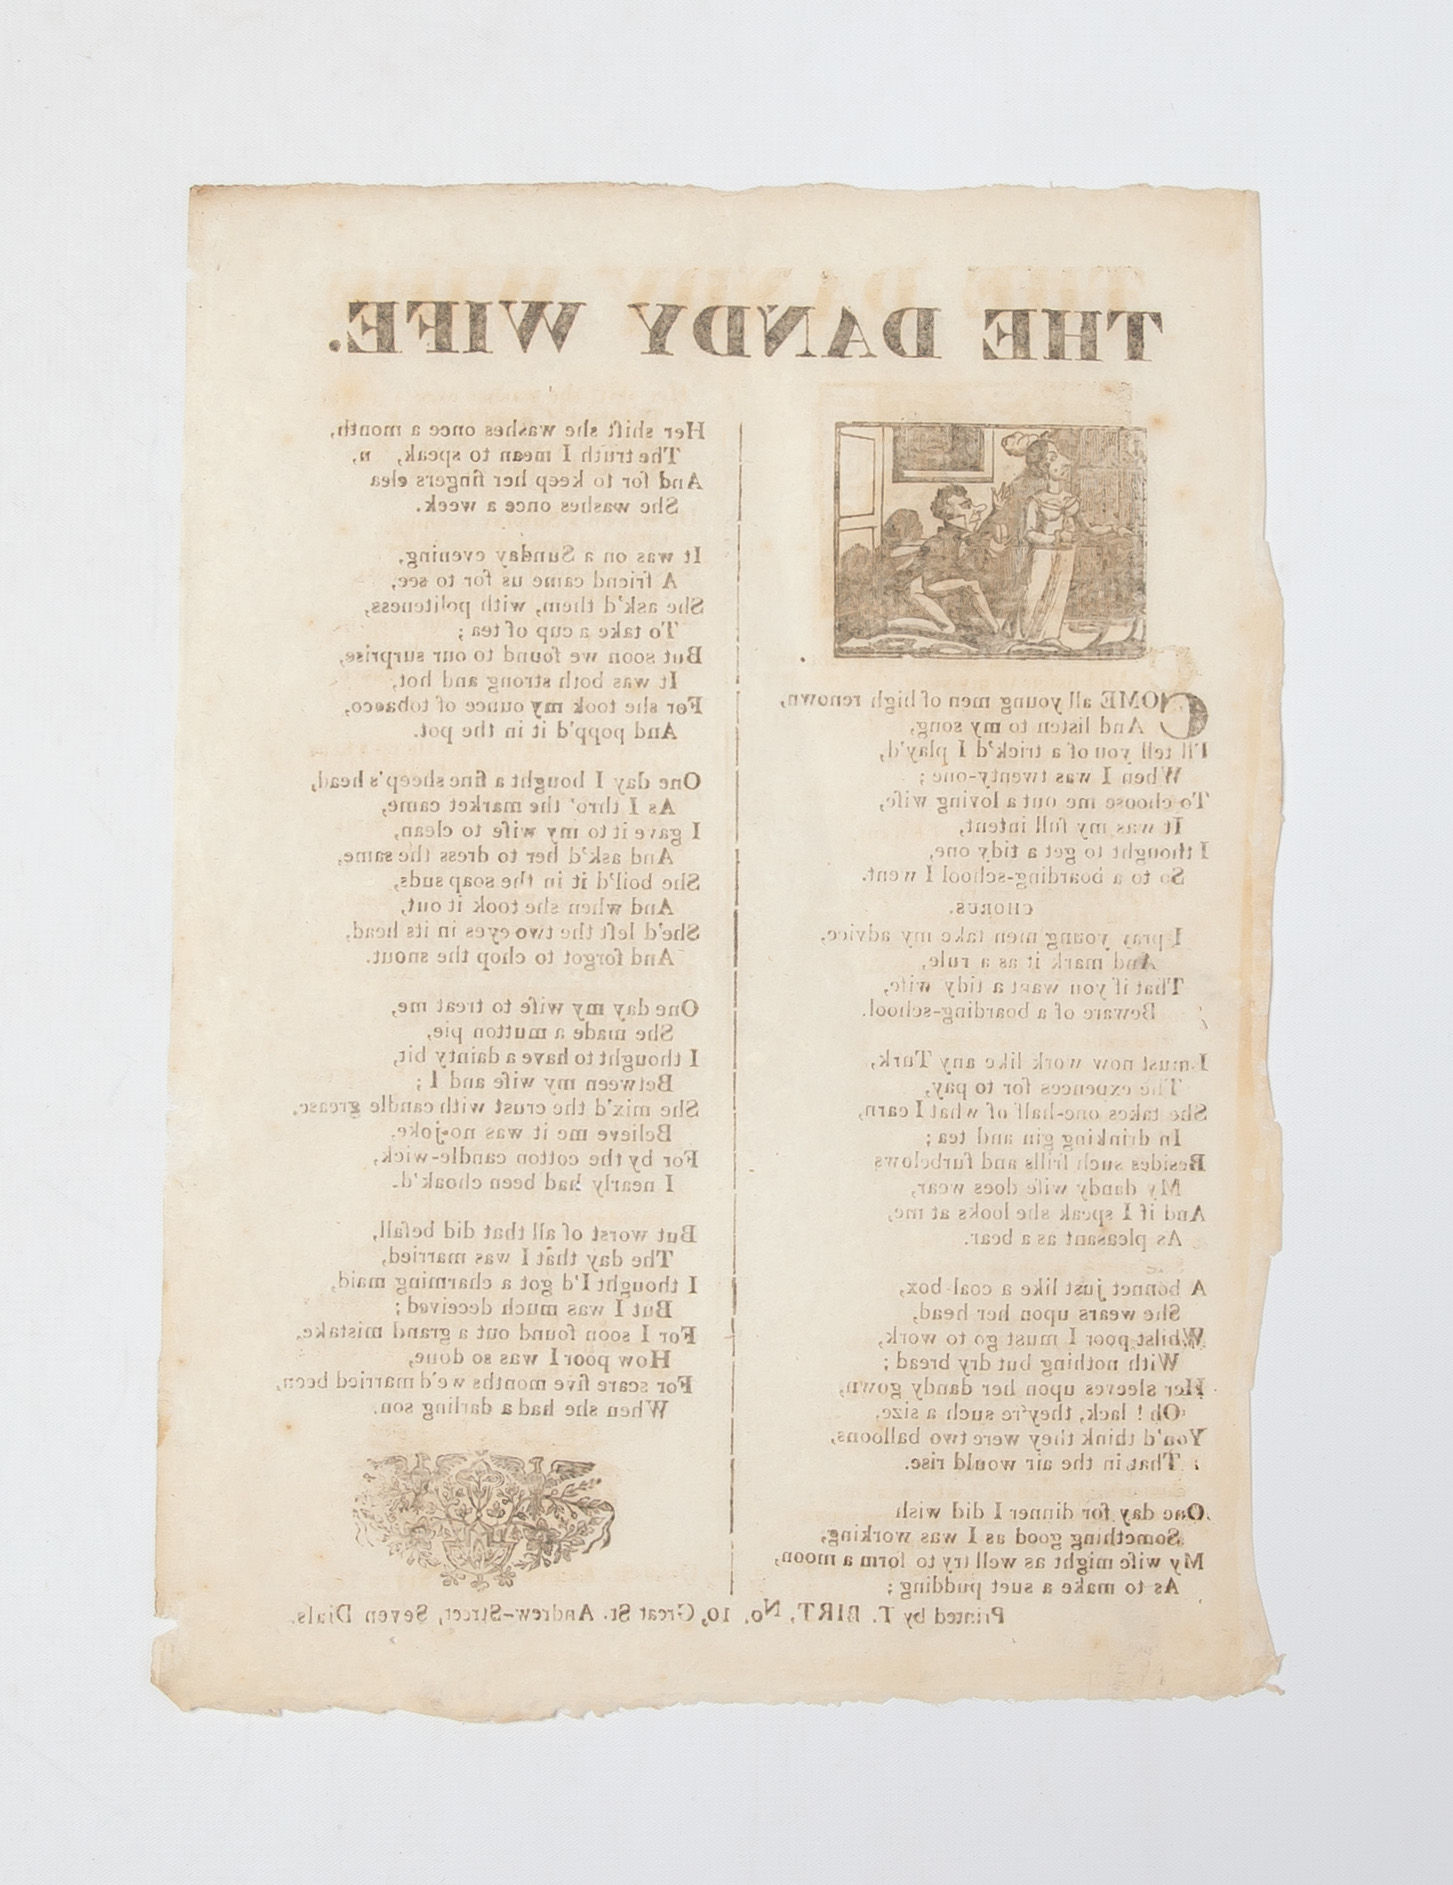 THE DANDY WIFE.
COME all young men of high renown,
And listen to my song,
I'll tell you of a trick'd I play'd,
When I was twenty-one ;
To choose me out a loving wife,
It was my full intent,
I thought to get a tidy one,
So to a boarding-school I went.
CHORUS.
I pray young men take my advice,
And mark it as a rule,
That if you want a tidy wife,
Beware of a boarding-school.
I must now work like any Turk,
The expences for to pay,
She takes one-half of what I earn,
In drinking gin and tea ;
Besides such frills and furbelows
My dandy wife does wear,
And if I speak she looks at me,
As pleasant as a bear.
A bonnet just like a coal box,
She wears upon her head,
Whilst poor I must go to work,
With nothing but dry bread ;
Her sleeves upon her dandy gown,
Oh ! lack, they're such a size,
You'd think they were two balloons,
That in the air would rise.
One day for dinner I did wish
Something good as I was working,
My wife might as well try to form a moon,
As to make a suet pudding ;
Her shift she washes once a month,
The truth I mean to speak, n,
And for to keep her fingers clea
She washes once a week.
It was on a Sunday evening,
A friend came us for to see,
She ask'd them, with politeness,
To take a cup of tea ;
But soon we found to our surprise,
It was both strong and hot,
For she took my ounce of tobacco,
And popp'd it in the pot.
One day I bought a fine sheep's head,
As I thro' the market came,
I gave it to my wife to clean,
And ask'd her to dress the same,
She boil'd it in the soap suds,
And when she took it out,
She'd left the two eyes in its head,
And forgot to chop the snout.
One day my wife to treat me,
She made a mutton pie,
I thought to have a dainty bit,
Between my wife and I ;
She mix'd the crust with candle grease,
Believe me it was no-joke,
For by the cotton candle-wick,
I nearly had been choak'd.
But worst of all that did befall,
The day that I was married,
I thought I'd got a charming maid,
But I was much deceived ;
For I soon found out a grand mistake,
How poor I was so done,
For scare five months we'd married been,
When she had a darling son.
Printed by T. BIRT, No. 10, Great St. Andrew-Street, Seven Dials.